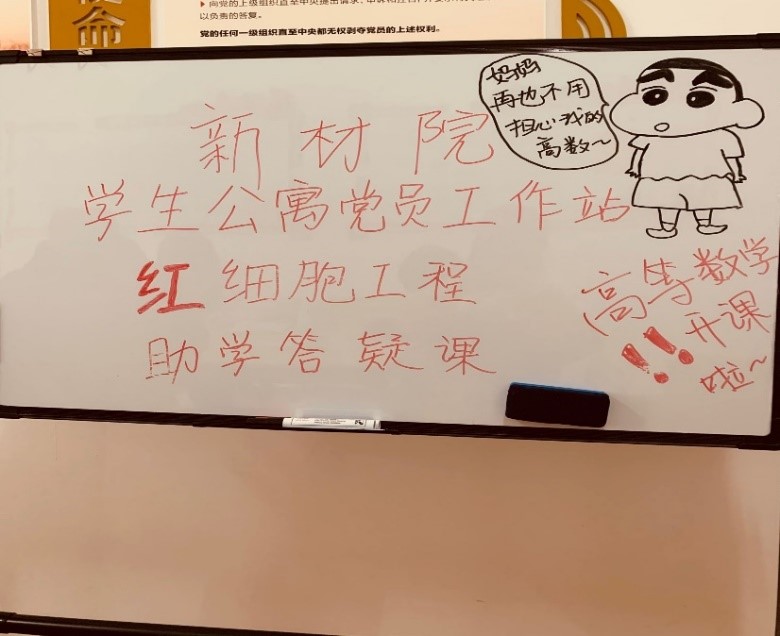 命
▶ 向党的上级组织直至中央提出请求、申诉和控告,并要求
以负责的答复。
党的任何一级组织直至中央都无权剥夺党员的上述权利。
妈妈
再也不用
担心我的
高数~
新材院
学生公寓党员工作站
红细胞工程
助学答疑课
高等数学
开课
!!
啦~